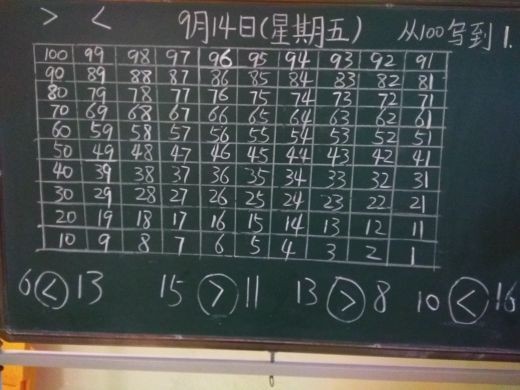 > < 9月14日(星期五) 从100写到1.
100 99 98 97 96 95 94 93 92 91
90 89 88 87 86 85 84 83 82 81
80 79 78 77 76 75 74 73 72 71
70 69 68 67 66 65 64 63 62 61
60 59 58 57 56 55 54 53 52 51
50 49 48 47 46 45 44 43 42 41
40 39 38 37 36 35 34 33 32 31
30 29 28 27 26 25 24 23 22 21
20 19 18 17 16 15 14 13 12 11
10 9 8 7 6 5 4 3 2 1
6 < 13 15 > 11 13 > 8 10 < 16